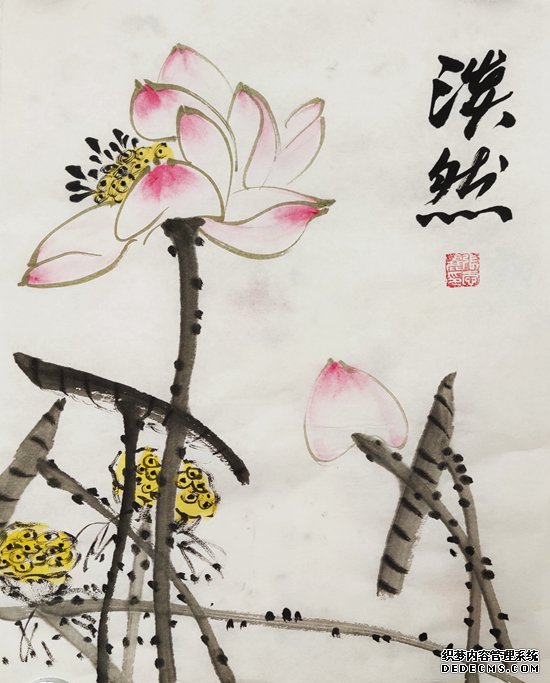 淡然
织梦内容管理系统
DEDECMS.COM